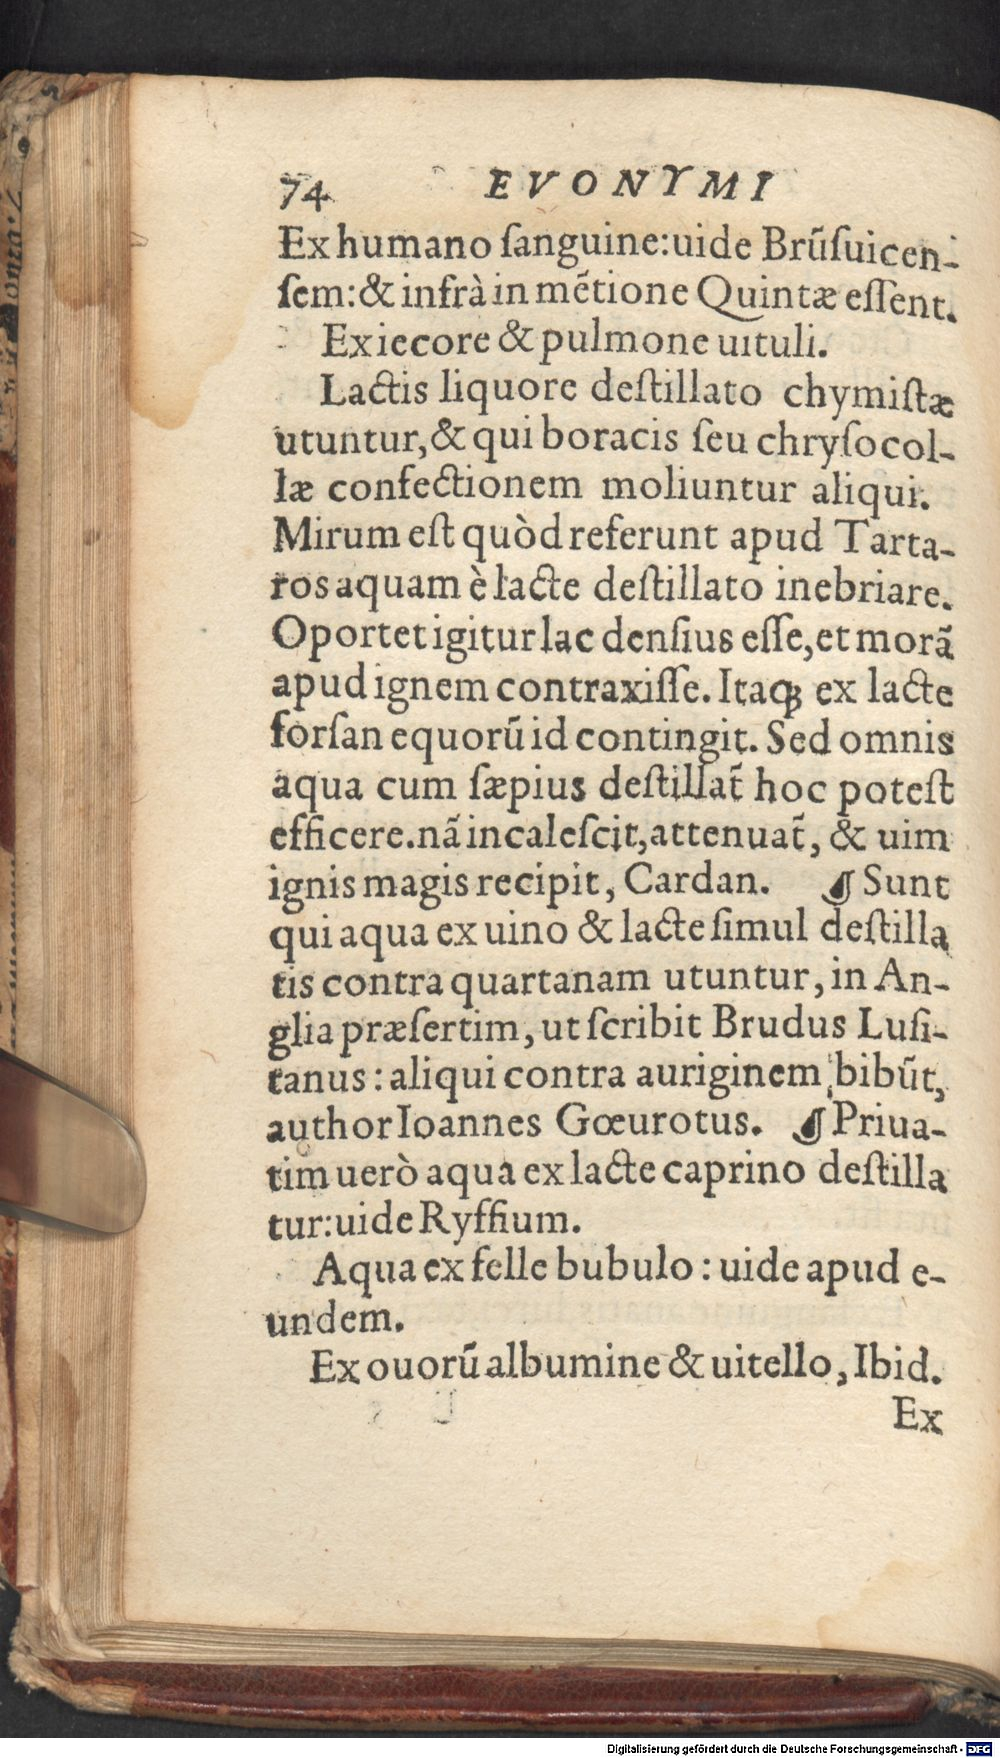 74 EVONYMI
Ex humano ſanguine:uide Brũſuicen-
ſem:& infrà in mẽtione Quintæ eſſent.
Ex iecore & pulmone uituli.
Lactis liquore deſtillato chymiſtæ
utuntur,& qui boracis ſeu chryſocol-
læ confectionem moliuntur aliqui.
Mirum eſt quòd referunt apud Tarta-
ros aquam è lacte deſtillato inebriare.
Oportet igitur lac denſius eſſe,et morã
apud ignem contraxiſſe. Itaqꝫ ex lacte
forſan equorũ id contingit. Sed omnis
aqua cum ſæpius deſtillat̃ hoc poteſt
efficere.nã incaleſcit,attenuat̃, & uim
ignis magis recipit, Cardan. ¶ Sunt
qui aqua ex uino & lacte ſimul deſtilla
tis contra quartanam utuntur, in An-
glia præſertim, ut ſcribit Brudus Luſi-
tanus: aliqui contra auriginem bibũt,
author Ioannes Gœurotus. ¶ Priua-
tim uerò aqua ex lacte caprino deſtilla
tur:uide Ryffium.
Aqua ex felle bubulo: uide apud e-
undem.
Ex ouorũ albumine & uitello, Ibid.
Ex
Digitalisierung gefördert durch die Deutsche Forschungsgemeinschaft - DFG